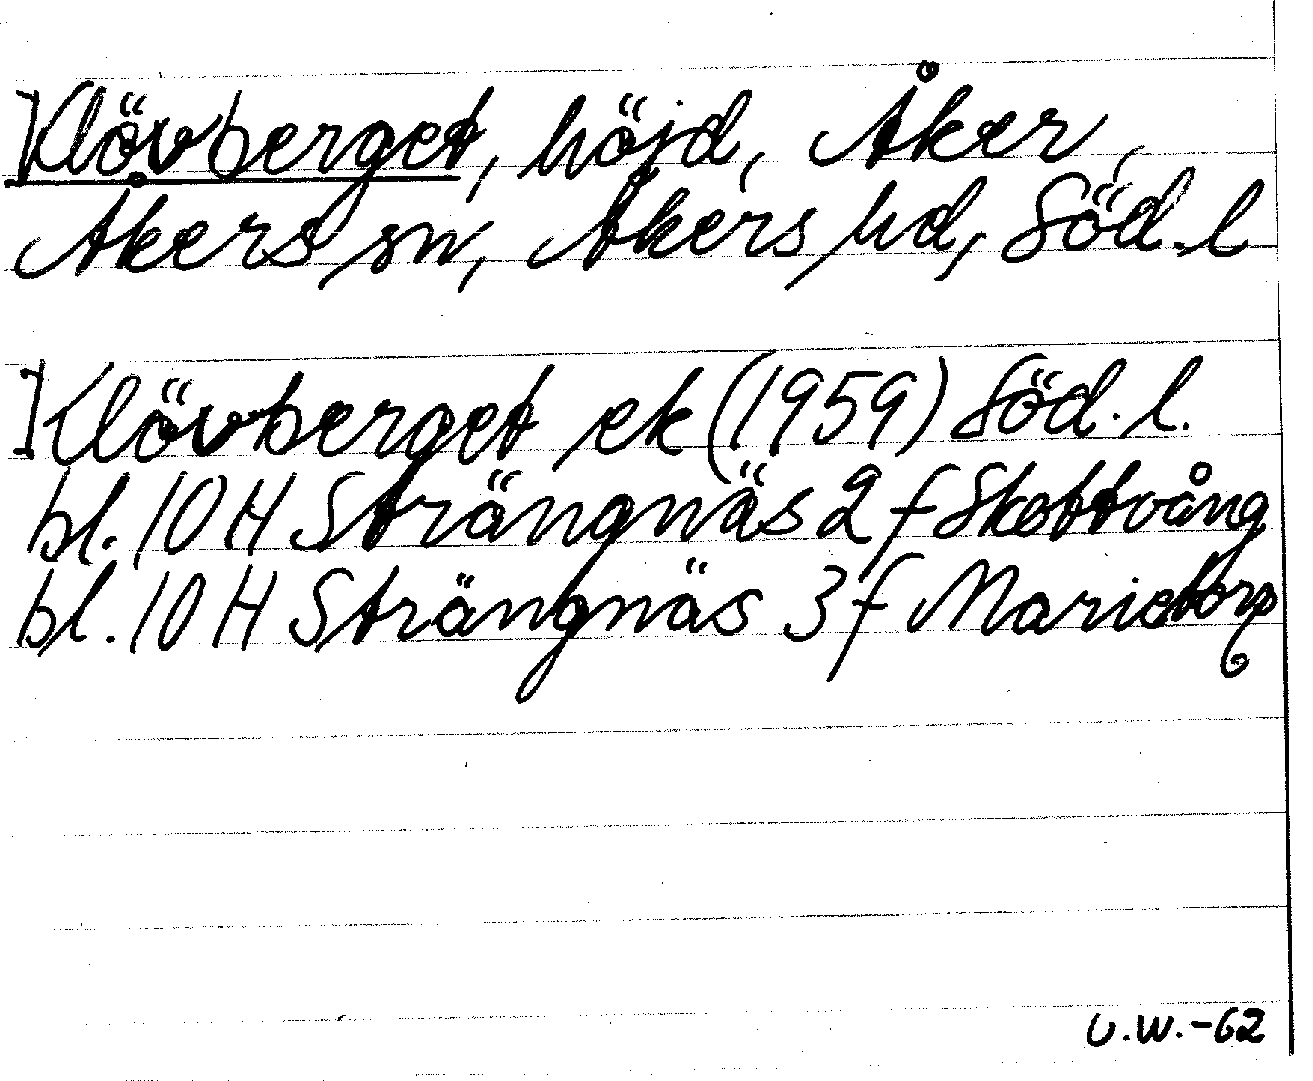 Klövberget, höjd, Åker,
Åkers sn, Åkers hd, Söd.l
Klövberget ek (1959) Söd.l.
bl. 10 H Strängnäs 2 f Skottvång
bl. 10 H Strängnäs 3 f Marietorp
U.W.-62